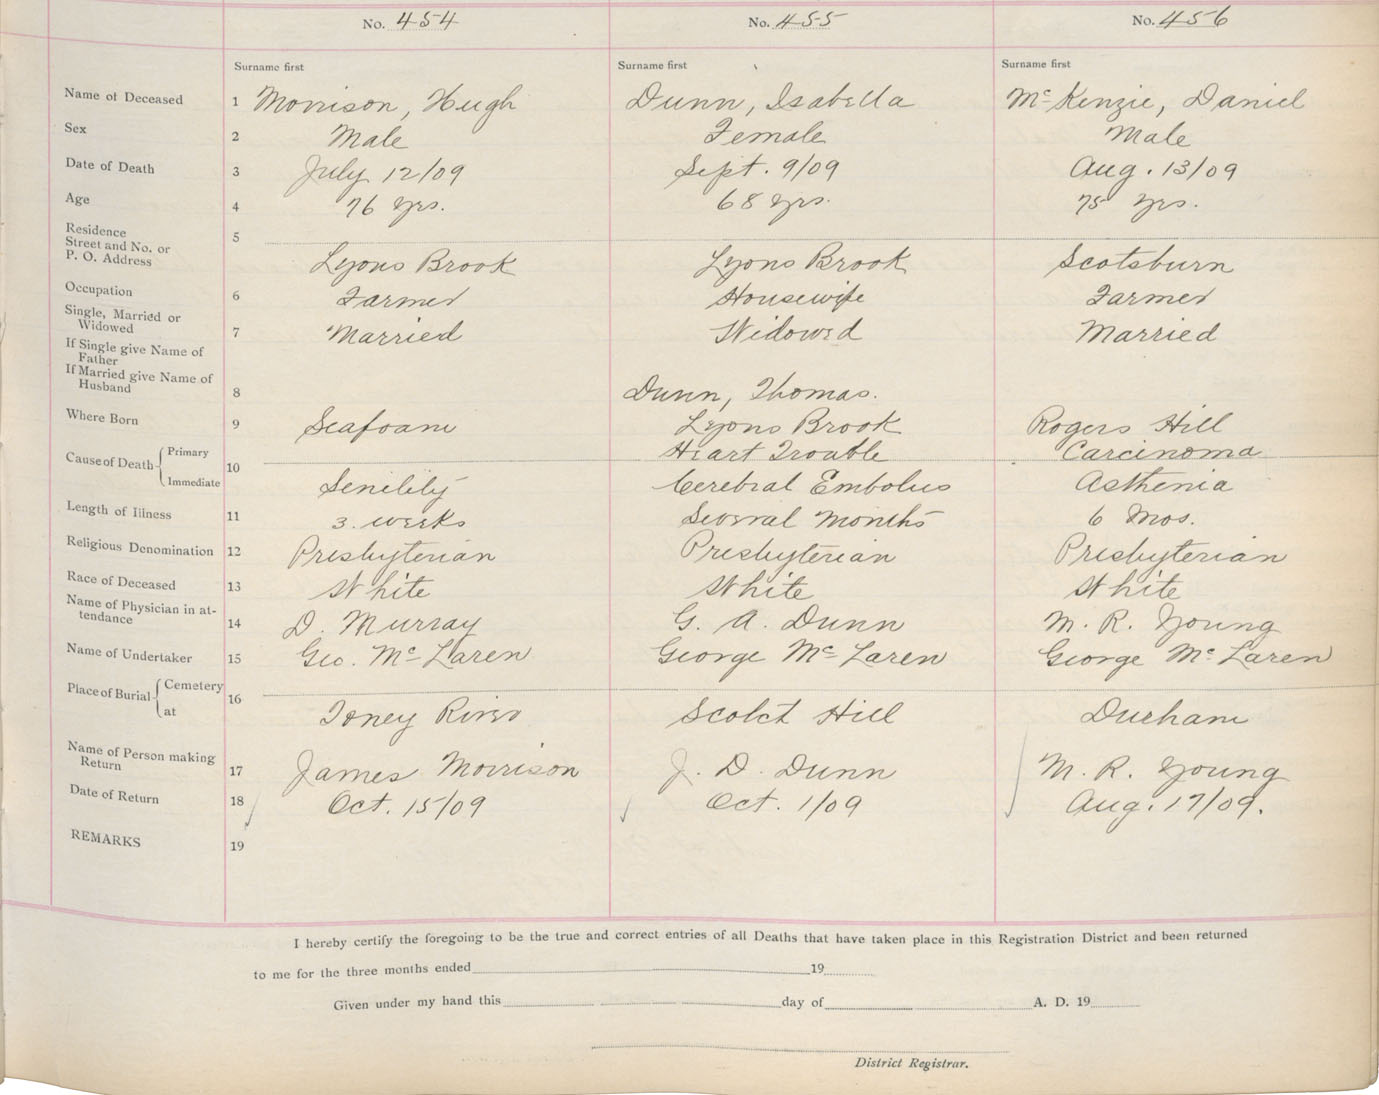 No. 454 No. 455 No. 456
Surname first Surname first Surname first
Name of Deceased 1 Morrison, Hugh Dunn, Isabella McKenzie, Daniel
Sex 2 Male Female Male
Date of Death 3 July 12/09 Sept. 9/09 Aug. 13/09
Age 4 76 yrs. 68 yrs. 75 yrs.
Residence
Street and No. or 5
P. O. Address Lyons Brook Lyons Brook Scotsburn
Occupation 6 Farmer Housewife Farmer
Single, Married or
Widowed 7 Married Widowed Married
If Single give Name of
Father
If Married give Name of
Husband 8 Dunn, Thomas.
Where Born 9 Seafoam Lyons Brook Rogers Hill
Cause of Death Primary 10 Heart Trouble Carcinoma
Immediate Senility Cerebral Embolus Asthenia
Length of Illness 11 3. weeks Several Months 6 Mos.
Religious Denomination 12 Presbyterian Presbyterian Presbyterian
Race of Deceased 13 White White White
Name of Physician in at-
tendance 14 D. Murray G. A. Dunn M. R. Young
Name of Undertaker 15 Geo. McLaren George McLaren George McLaren
Place of Burial Cemetery 16
at Toney River Scotch Hill Durham
Name of Person making
Return 17 James Morrison J. D. Dunn M. R. Young
Date of Return 18 Oct. 15/09 Oct. 1/09 Aug. 17/09.
REMARKS 19
I hereby certify the foregoing to be the true and correct entries of all Deaths that have taken place in this Registration District and been returned
to me for the three months ended 19
Given under my hand this day of A. D. 19
District Registrar.